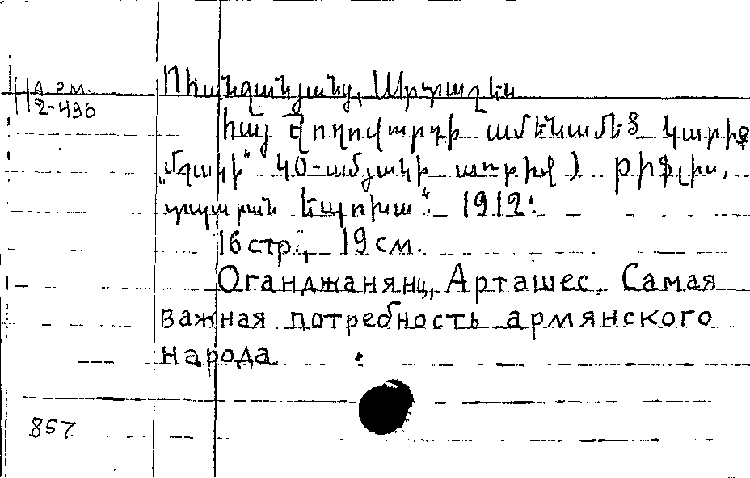 А эм.
2-490
Օհանջանյանց, Արտաշես
Հայ ժողովարդի ամենամեծ կարիք
„Մշակի“ 40-ամյակի առթիվ) Թիֆլիս,
տպարան Եպոխա“. 1912։
16 стр., 19 см.
Оганджанянц, Арташес. Самая
важная потребность армянского
народа.
857